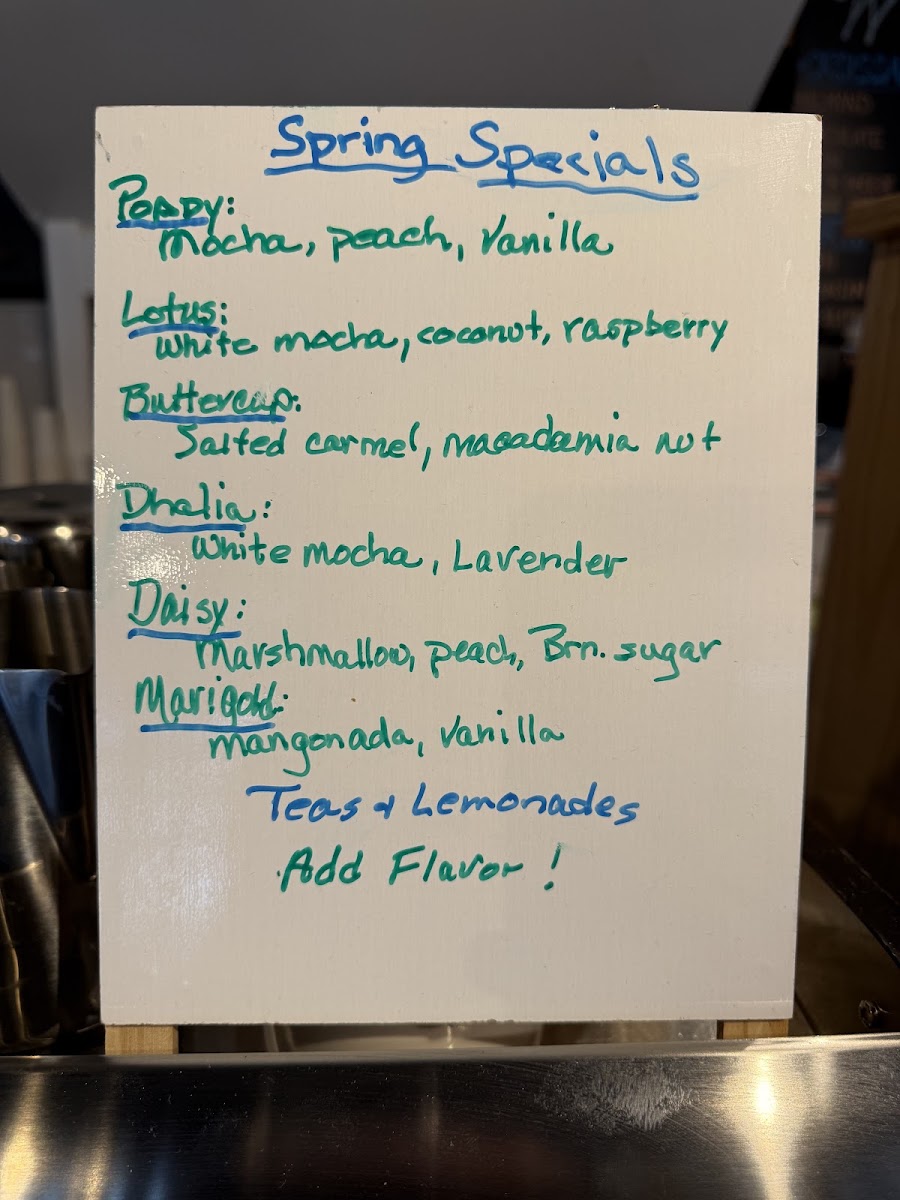 Spring Specials
Poppy:
Mocha, peach, vanilla
Lotus:
White mocha, coconut, raspberry
Buttercup:
Salted carmel, macadamia nut
Dhalia:
White mocha, Lavender
Daisy:
Marshmallow, peach, Brn. sugar
Marigold:
mangonada, vanilla
Teas & Lemonades
Add Flavor!